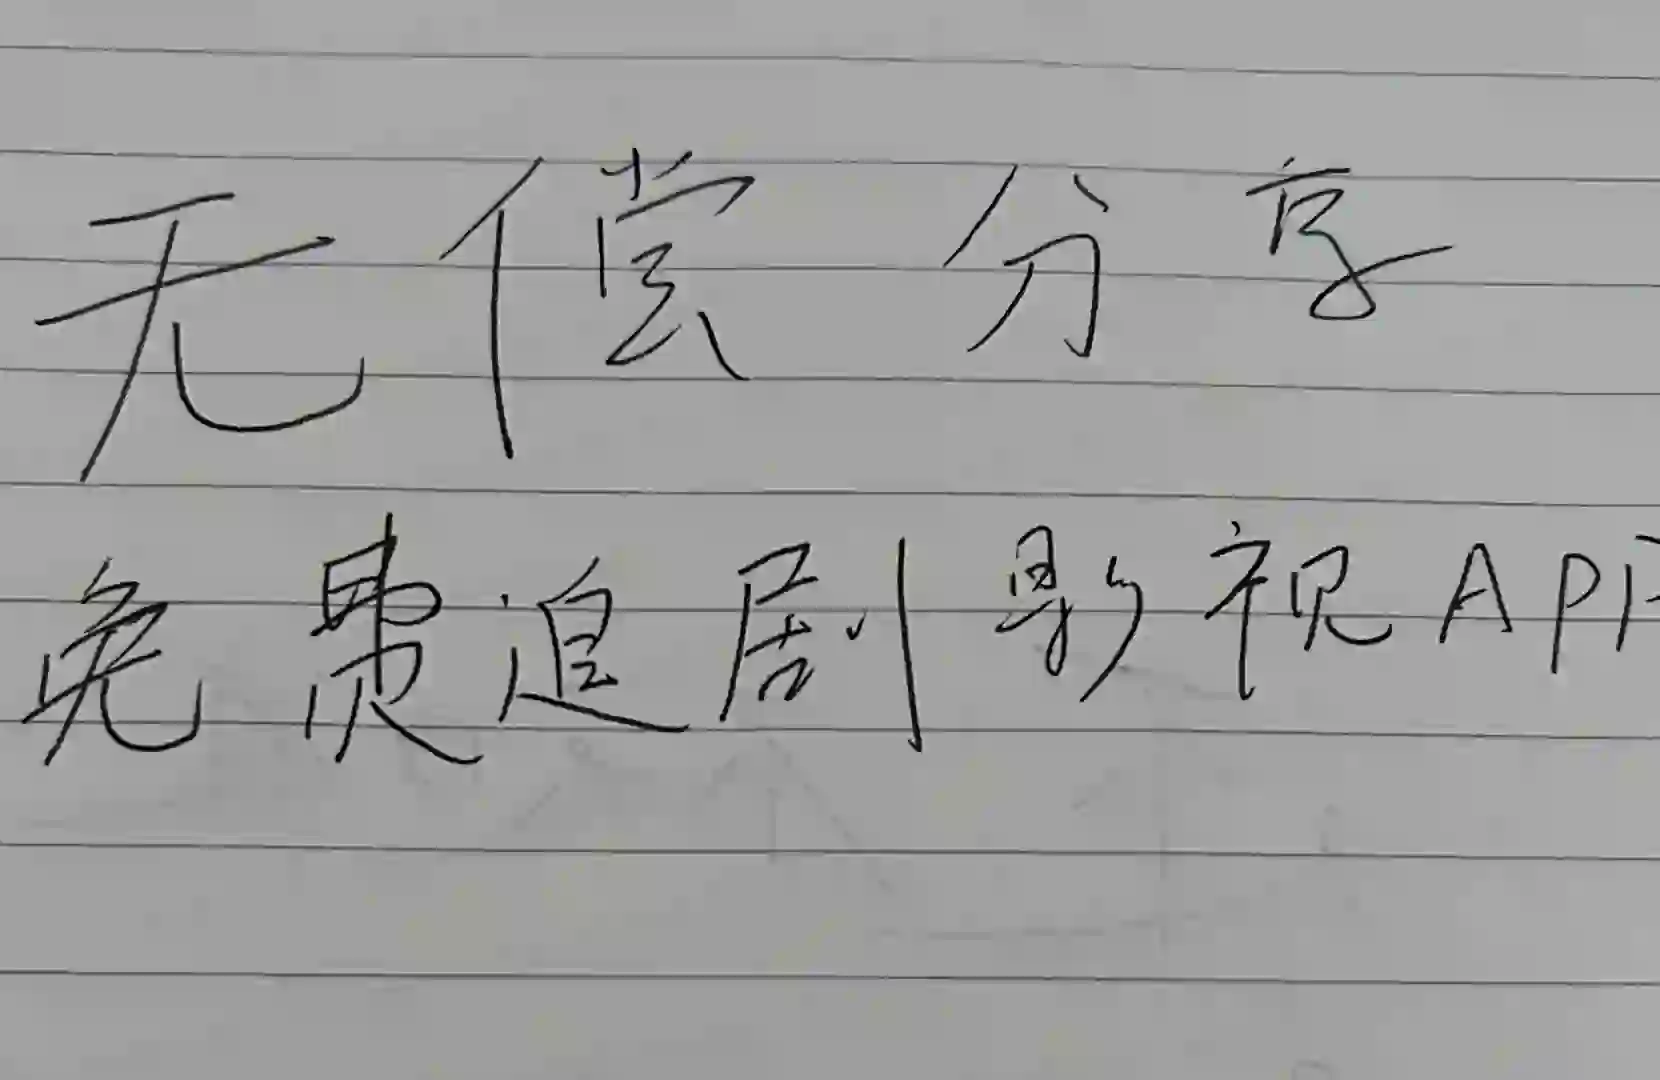 无偿分享
免费追剧影视APP